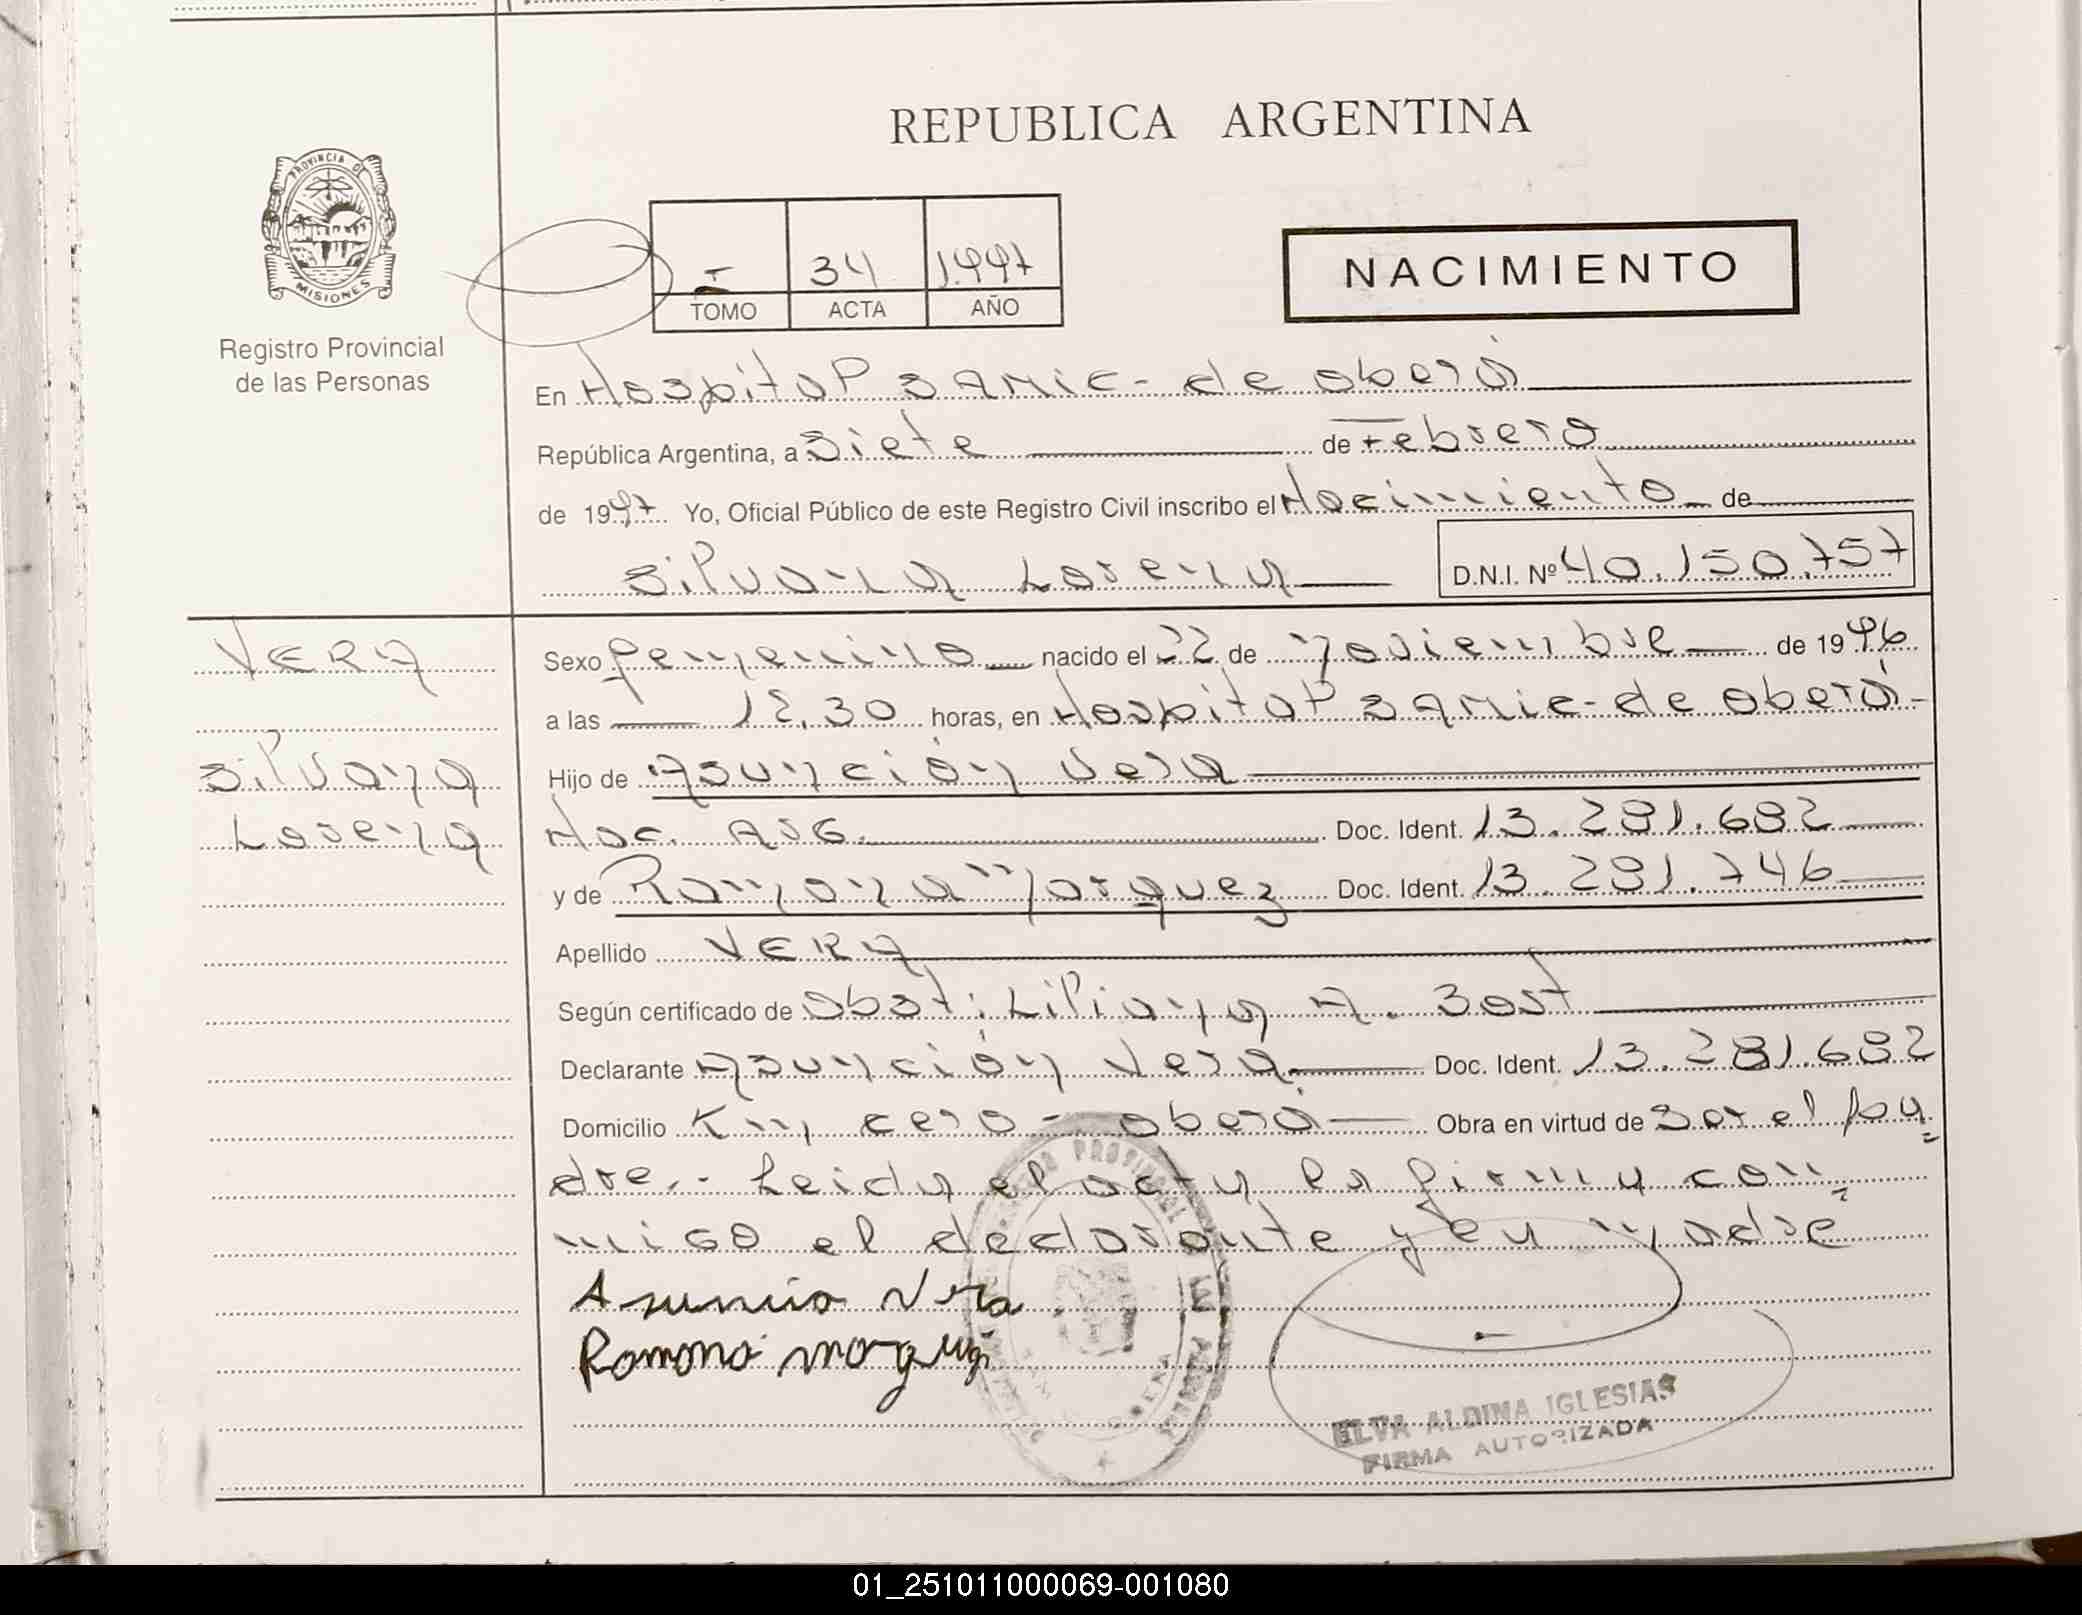 REPUBLICA ARGENTINA
PROVINCIA DE
MISIONES
Registro Provincial
de las Personas
I 34 1.997
TOMO ACTA AÑO
NACIMIENTO
En Hospital SAMIC- de Oberá
República Argentina, a Siete de Febrero
de 1997 Yo, Oficial Público de este Registro Civil inscribo el Nacimiento de
Silvana Lorena D.N.I. Nº 40.150.757
VERA
Silvana
Lorena
Sexo femenino nacido el 22 de noviembre de 1996
a las 12.30 horas, en Hospital SAMIC-de Oberá-
Hijo de Asunción Vera
Nac. ARG. Doc. Ident. 13.281.682
y de Ramona Marquez Doc. Ident. 13.281.746
Apellido VERA
Según certificado de Obst: Liliana A. Sost
Declarante Asunción Vera Doc. Ident. 13.281.682
Domicilio Km, cero - Oberá Obra en virtud de Ser el pa
dre.- Leida el acta la firma con
migo el declarante y su madre
Asuncio Vera
Ramona
ELVA ALDINA IGLESIAS
FIRMA AUTORIZADA
01_251011000069-001080